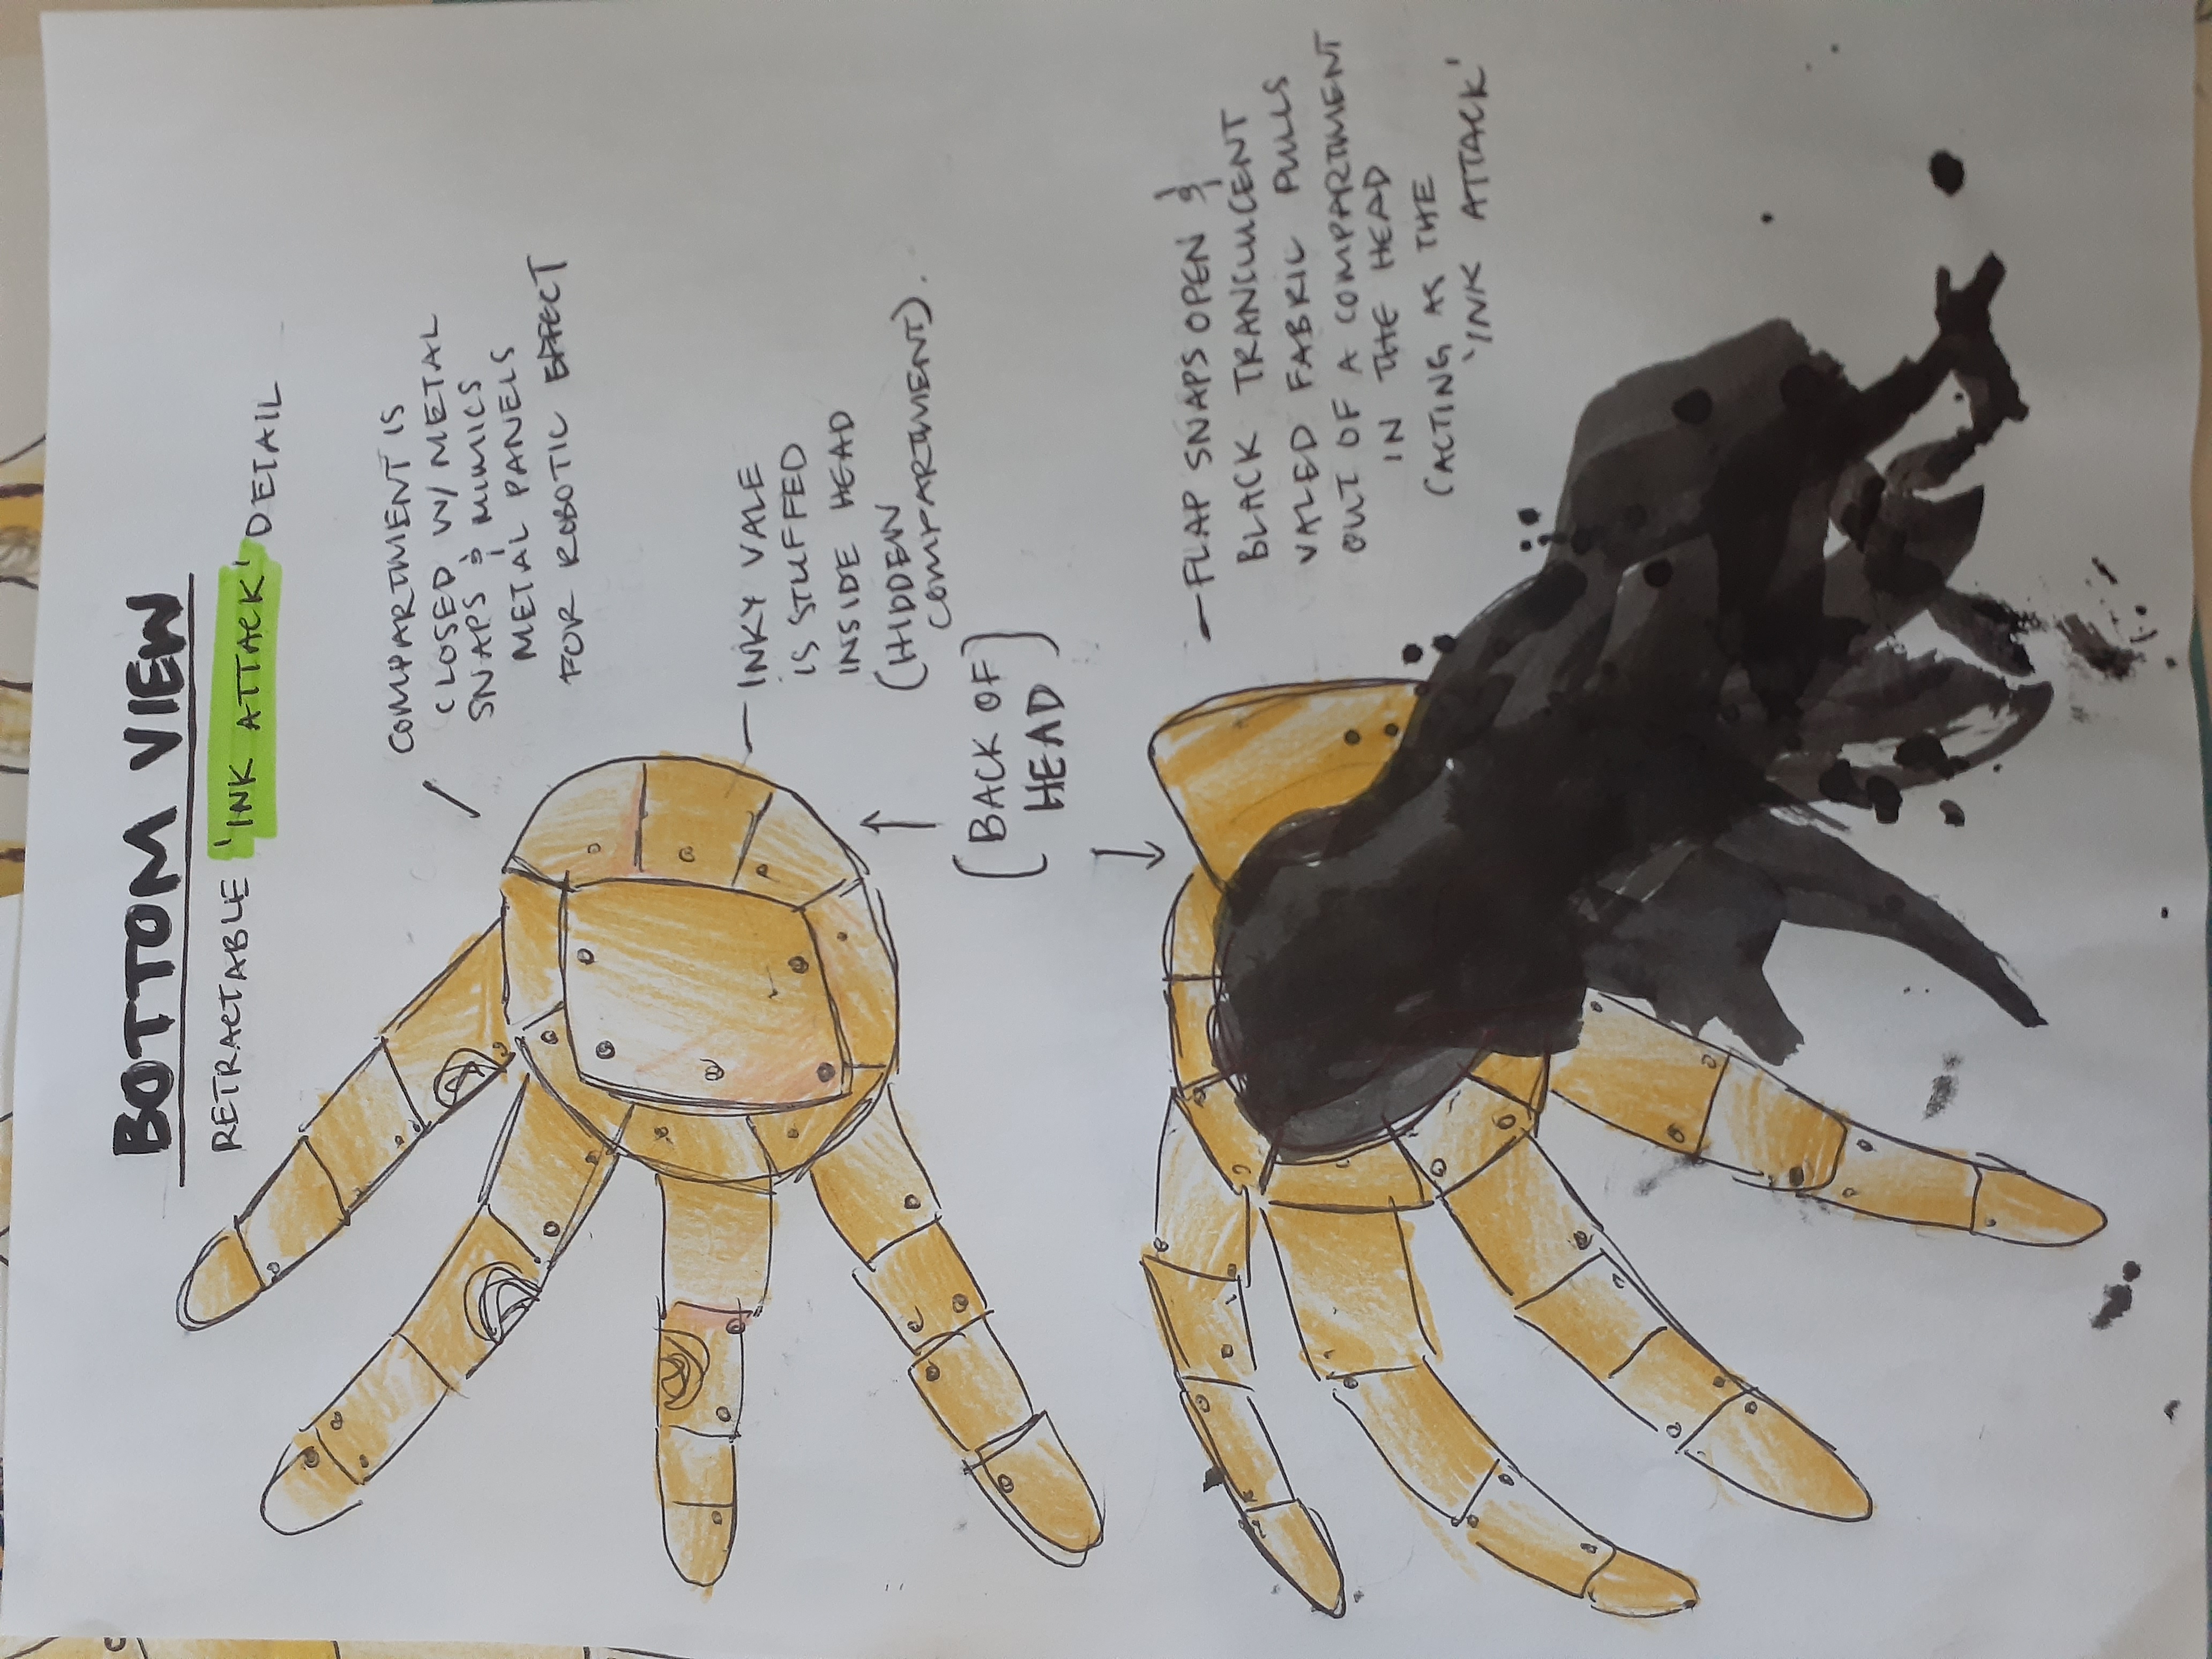 BOTTOM VIEW
RETRACTABLE 'INK ATTACK' DETAIL
COMPARTMENT IS
CLOSED W/ METAL
SNAPS & MIMICS
METAL PANELS
FOR ROBOTIC EFFECT
— INKY VALE
IS STUFFED
INSIDE HEAD
(HIDDEN
COMPARTMENT).
(BACK OF)
HEAD
— FLAP SNAPS OPEN &
BLACK TRANCLUCENT
VALED FABRIC PULLS
OUT OF A COMPPARTMENT
IN THE HEAD
(ACTING AS THE
'INK ATTACK'